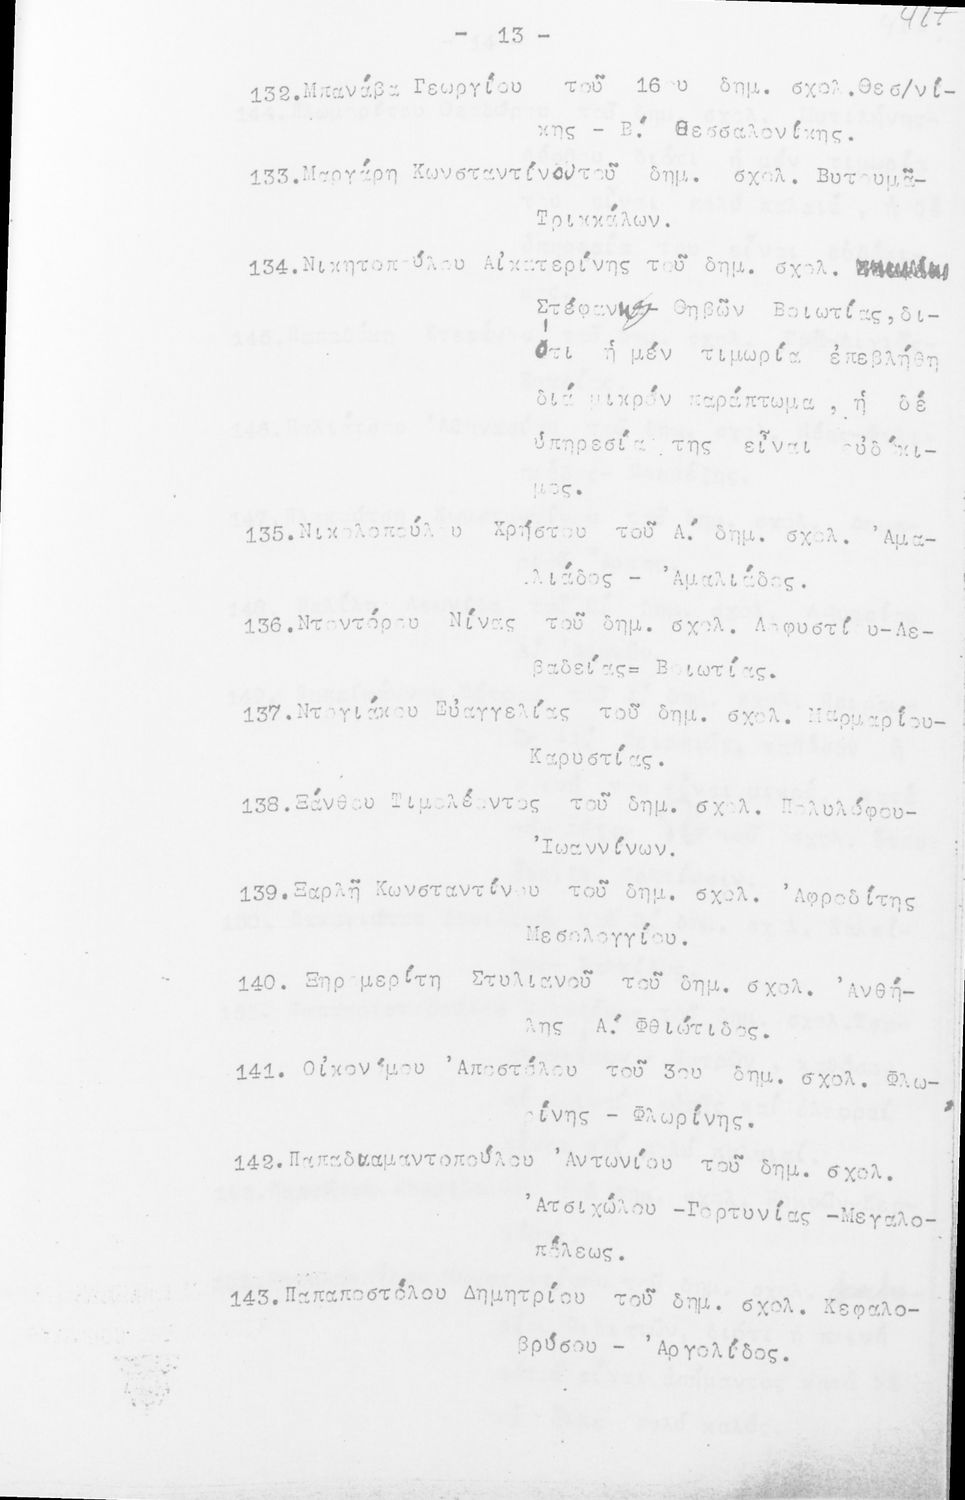 417
- 13 -
132.Μπανάβα Γεωργίου τοῦ 16ου δημ. σχολ.Θεσ/νί-
κης - Β.΄ Θεσσαλονίκης.
133.Μαργάρη Κωνσταντίνου τοῦ δημ. σχολ. Βυτουμᾶ-
Τρικκάλων.
134.Νικητοπούλου Αἰκατερίνης τοῦ δημ. σχολ.
Στέφανης Θηβῶν Βοιωτίας,δι-
ότι ἡ μέν τιμωρία ἐπεβλήθη
διά μικρόν παράπτωμα , ἡ δέ
ὑπηρεσία της εἶναι εὐδόκι-
μος.
135.Νικολοπούλου Χρήστου τοῦ Α.΄ δημ. σχολ. Ἀμα-
λιάδος - Ἀμαλιάδος.
136.Ντοντόρου Νίνας τοῦ δημ. σχολ. Λαφυστίου-Λε-
βαδείας= Βοιωτίας.
137.Ντογιάκου Εὐαγγελίας τοῦ δημ. σχολ. Μαρμαρίου-
Καρυστίας.
138.Ξάνθου Τιμολέοντος τοῦ δημ. σχολ. Πολυλόφου-
Ἰωαννίνων.
139.Ξαρλῆ Κωνσταντίνου τοῦ δημ. σχολ. Ἀφροδίτης
Μεσολογγίου.
140. Ξηρομερίτη Στυλιανοῦ τοῦ δημ. σχολ. Ἀνθή-
λης Α.΄ Φθιώτιδος.
141. Οἰκονόμου Ἀποστόλου τοῦ 3ου δημ. σχολ. Φλω-
ρίνης - Φλωρίνης.
142.Παπαδιαμαντοπούλου Ἀντωνίου τοῦ δημ. σχολ.
Ἀτσιχώλου -Γορτυνίας -Μεγαλο-
πόλεως.
143.Παπαποστόλου Δημητρίου τοῦ δημ. σχολ. Κεφαλο-
βρύσου - Ἀργολίδος.